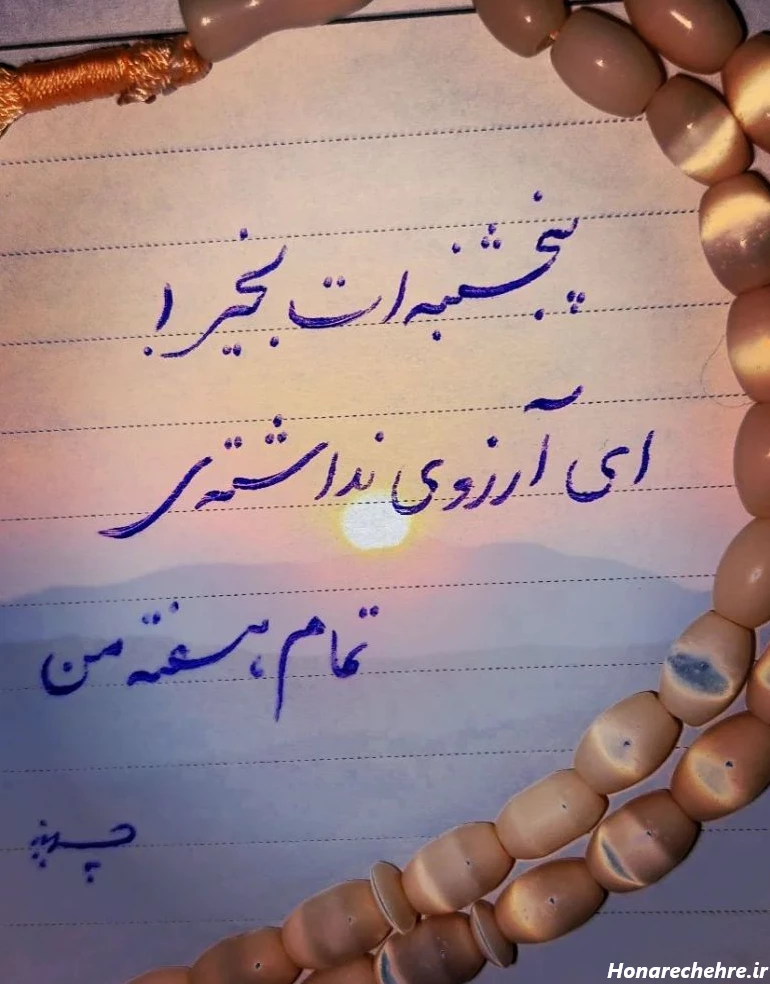 پنجشنبه ات بخیر!
ای آرزوی نداشته‌ی
تمام هفته من
Honarechehre.ir